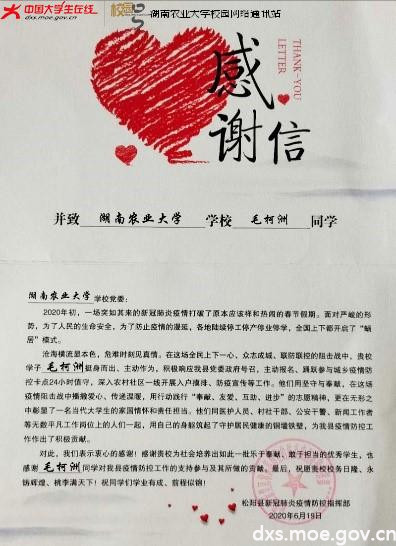 中国大学生在线
校园
湖南农业大学校园网络通讯站
感谢信
THANK-YOU
LETTER
并致 湖南农业大学 学校 毛柯洲 同学
湖南农业大学 学校党委:
2020年初,一场突如其来的新冠肺炎疫情打破了原本应该祥和热闹的春节假期。面对严峻的形
势,为了人民的生命安全,为了防止疫情的漫延,各地陆续停工停产停业停学,全国上下都开启了“蜗
居”模式。
沧海横流显本色,危难时刻见真情。在这场全民上下一心、众志成城、联防联控的阻击战中,贵校
学子 毛柯洲 挺身而出、主动作为,积极响应我县党委政府号召,主动报名、踊跃参与城乡疫情防
控卡点24小时值守,深入农村社区一线开展入户摸排、防疫宣传等工作。他们用坚守与奉献,在这场
疫情阻击战中播撒爱心、传递温暖,用行动践行“奉献、友爱、互助、进步”的志愿精神,更在无形之
中彰显了一名当代大学生的家国情怀和责任担当。他们同医护人员、村社干部、公安干警、新闻工作者
等无数平凡工作岗位上的人们一起,用自己的身躯筑起了守护居民健康的铜墙铁壁,为我县疫情防控工
作作出了积极贡献。
对此,我们表示衷心的感谢!感谢贵校为社会培养出如此一批乐于奉献、敢于担当的优秀学生,也
感谢 毛柯洲 同学对我县疫情防控工作的支持参与及其所做的贡献。最后,祝愿贵校校务日隆、永
铸辉煌、桃李满天下!祝同学们学业有成、前程似锦!
松阳县新冠肺炎疫情防控指挥部
2020年6月19日
dxs.moe.gov.cn